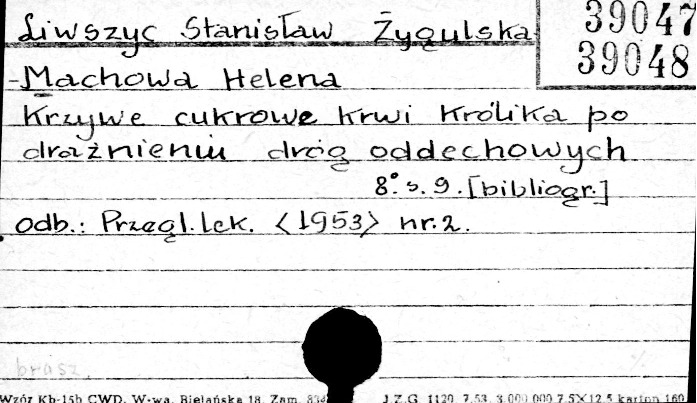 Liwszyc Stanisław Żygulska-
39047
39048
-Machowa Helena
Krzywe cukrowe krwi królika po
drażnieniu dróg oddechowych
8° s. 9. [bibliogr.]
odb.: Przegl. lek. <1953> nr. 2.
brosz.
Wzór Kb-15b CWD. W-wa, Bielańska 18. Zam. J.Z.G. 1120. 7.53. 3.000.000 7.5×12.5 karton 160